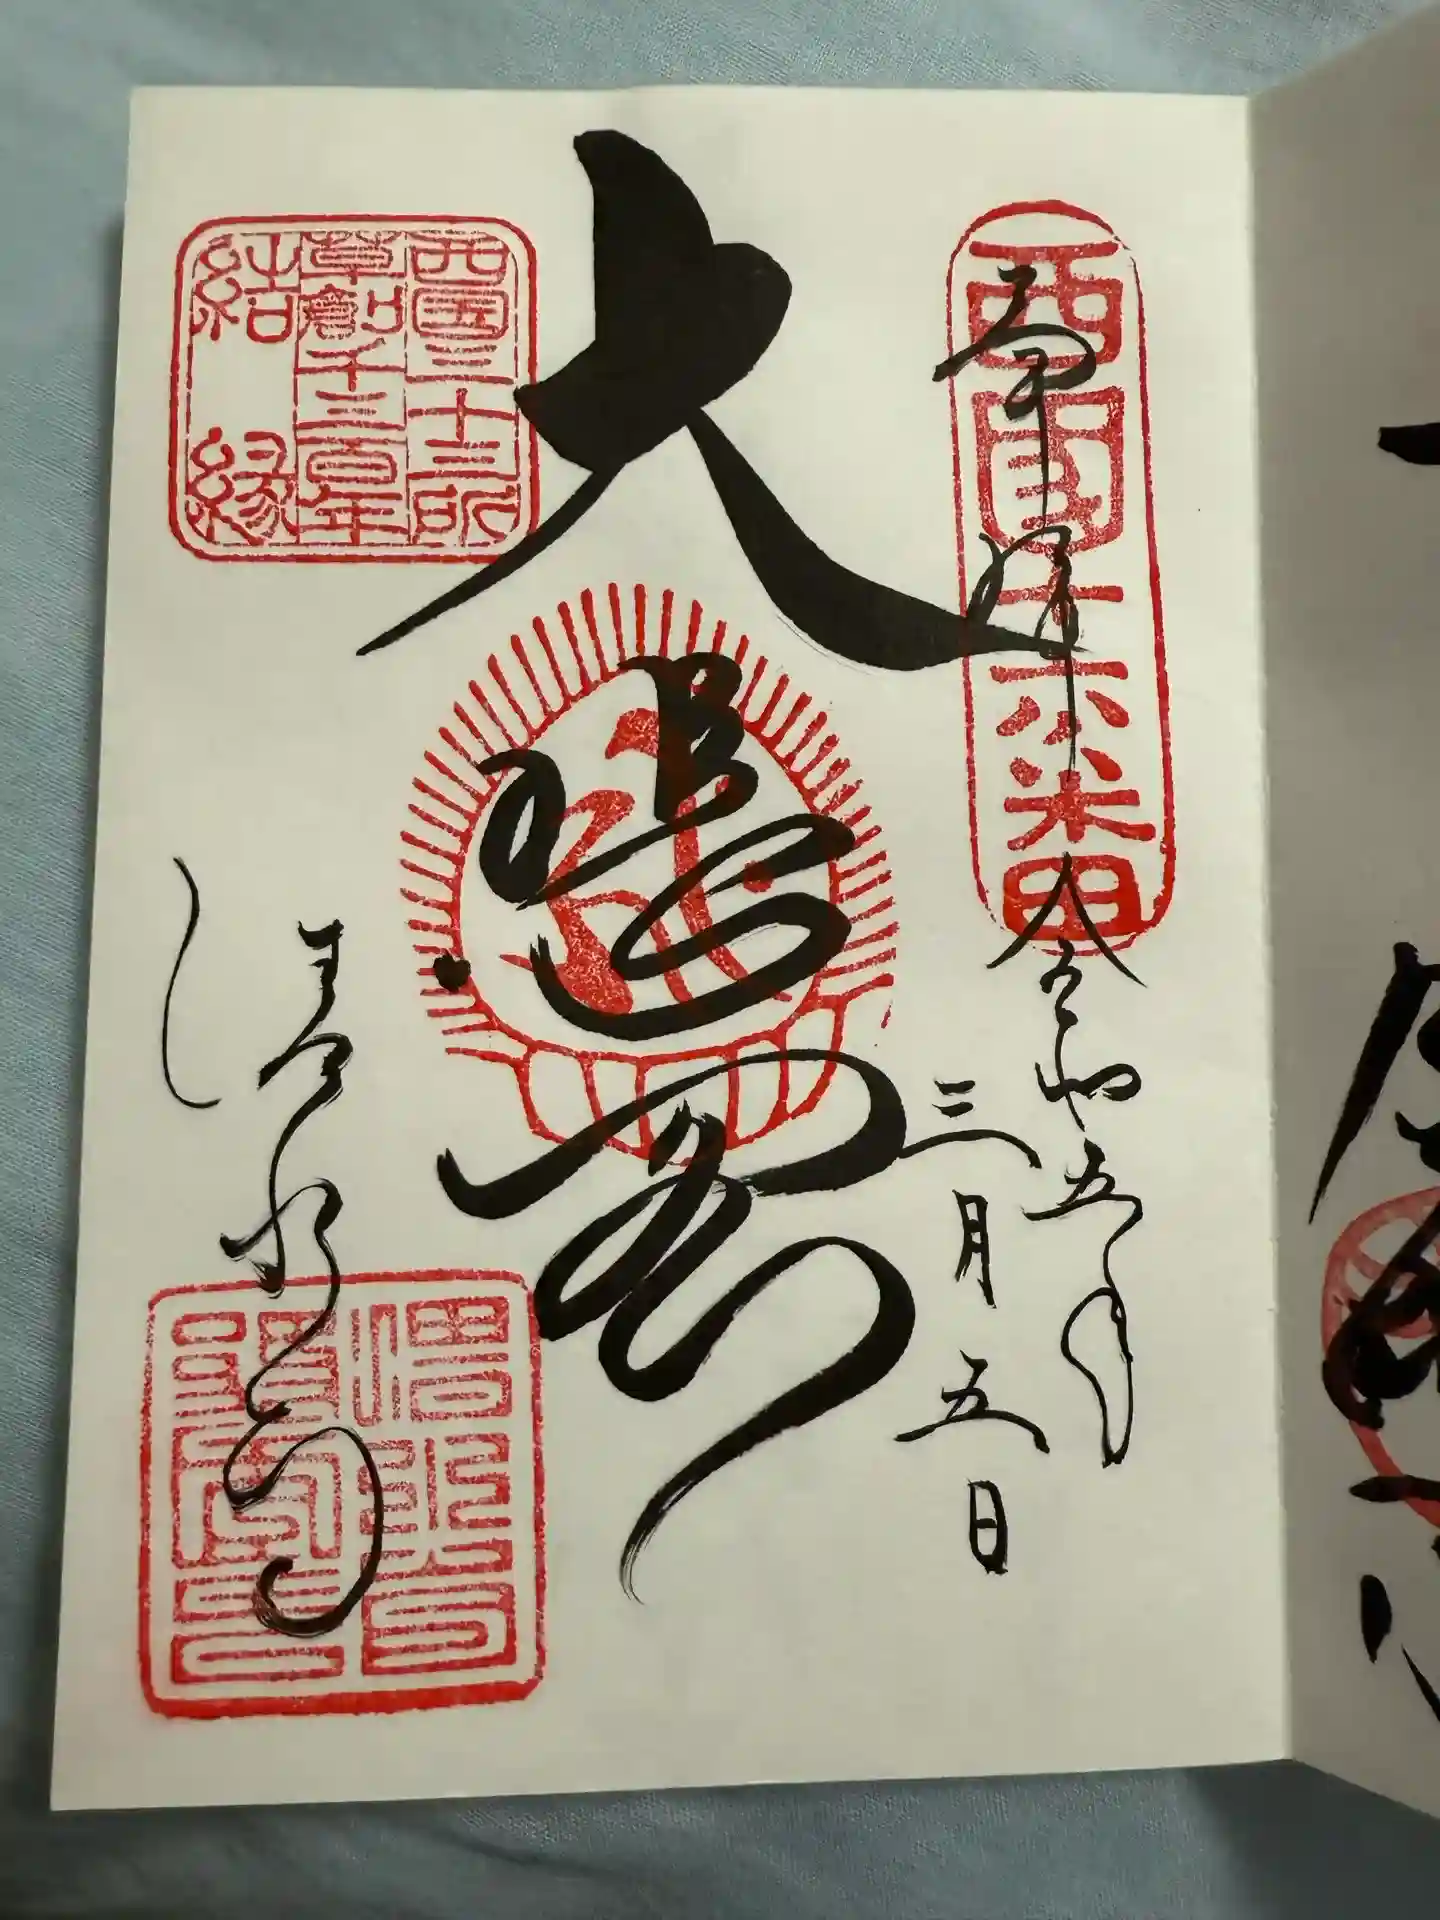 奉拝
令和五年
三月五日
西国十六番
大悲閣
清水寺
西国三十三所
草創千三百年
結縁